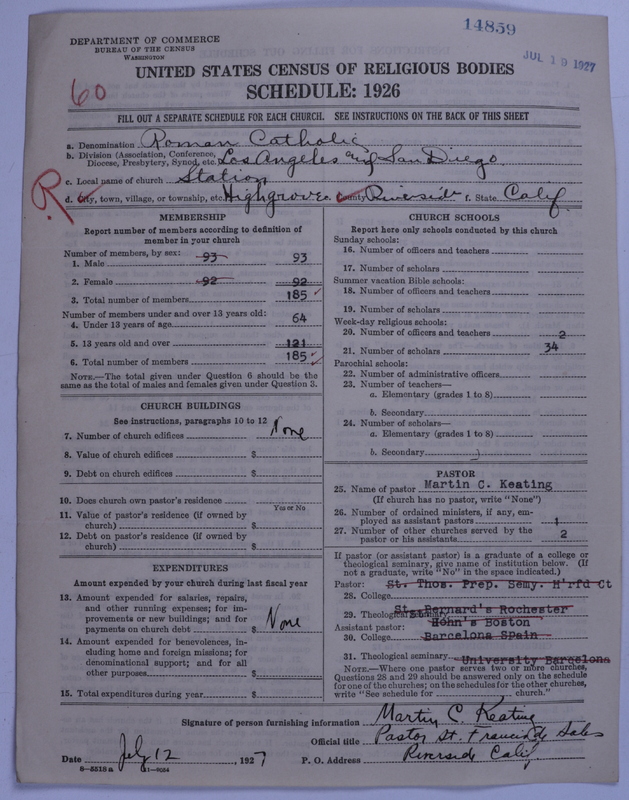 14859
DEPARTMENT OF COMMERCE
BUREAU OF THE CENSUS
WASHINGTON
JUL 19 1927
UNITED STATES CENSUS OF RELIGIOUS BODIES
60
SCHEDULE: 1926
FILL OUT A SEPARATE SCHEDULE FOR EACH CHURCH. SEE INSTRUCTIONS ON THE BACK OF THIS SHEET
a. Denomination Roman Catholic
b. Division (Association, Conference, Diocese, Presbytery, Synod, etc. Los Angeles and San Diego
c. Local name of church Station
R d. City, town, village, or township, etc. Highgrove e. County Riverside f. State Calif
MEMBERSHIP
Report number of members according to definition of
member in your church
Number of members, by sex:
1. Male 93 93
2. Female 92 92
3. Total number of members 185
Number of members under and over 13 years old:
4. Under 13 years of age 64
5. 13 years old and over 121
6. Total number of members 185
NOTE.—The total given under Question 6 should be
same as the total of males and females given under Question 3.
CHURCH BUILDINGS
See instructions, paragraphs 10 to 12
7. Number of church edifices None
8. Value of church edifices $
9. Debt on church edifices $
10. Does church own pastor's residence
Yes or No
11. Value of pastor's residence (if owned by
church) $
12. Debt on pastor's residence (if owned by
church) $
EXPENDITURES
Amount expended by your church during last fiscal year
13. Amount expended for salaries, repairs,
and other running expenses; for im-
provements or new buildings; and for
payments on church debt $ None
14. Amount expended for benevolences, in-
cluding home and foreign missions; for
denominational support; and for all
other purposes $
15. Total expenditures during year $
CHURCH SCHOOLS
Report here only schools conducted by this church
Sunday schools:
16. Number of officers and teachers
17. Number of scholars
Summer vacation Bible schools:
18. Number of officers and teachers
19. Number of scholars
Week-day religious schools:
20. Number of officers and teachers 2
21. Number of scholars 34
Parochial schools:
22. Number of administrative officers
23. Number of teachers—
a. Elementary (grades 1 to 8)
b. Secondary
24. Number of scholars—
a. Elementary (grades 1 to 8)
b. Secondary
PASTOR
25. Name of pastor Martin C. Keating
(If church has no pastor, write "None")
26. Number of ordained ministers, if any, em-
ployed as assistant pastors 1
27. Number of other churches served by the
pastor or his assistants 2
If pastor (or assistant pastor) is a graduate of a college or
theological seminary, give name of institution below. (If
not a graduate, write "No" in the space indicated.)
Pastor: St. Thos. Prep. Semy. H'rfd Ct
28. College
29. Theological seminary St. Bernard's Rochester
Assistant pastor: Hohn's Boston
30. College Barcelona Spain
31. Theological seminary University Barcelona
NOTE.—Where one pastor serves two or more churches,
Questions 28 and 29 should be answered only on the schedule
for one of the churches; on the schedules for the other churches,
write "See schedule for church."
Signature of person furnishing information Martin C. Keating
Official title Pastor St. Francis de Sales
Date July 12, 1927 P. O. Address Riverside Calif
8—5518 a 11—9054